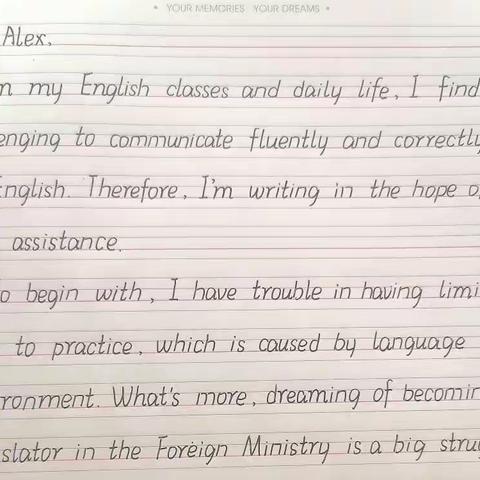 • YOUR MEMORIES YOUR DREAMS •
Alex,
n my English classes and daily life, I find
enging to communicate fluently and correctly
English. Therefore, I'm writing in the hope o
assistance.
o begin with, I have trouble in having limi
to practice, which is caused by language
ronment. What's more, dreaming of becomin
slator in the Foreign Ministry is a big strug